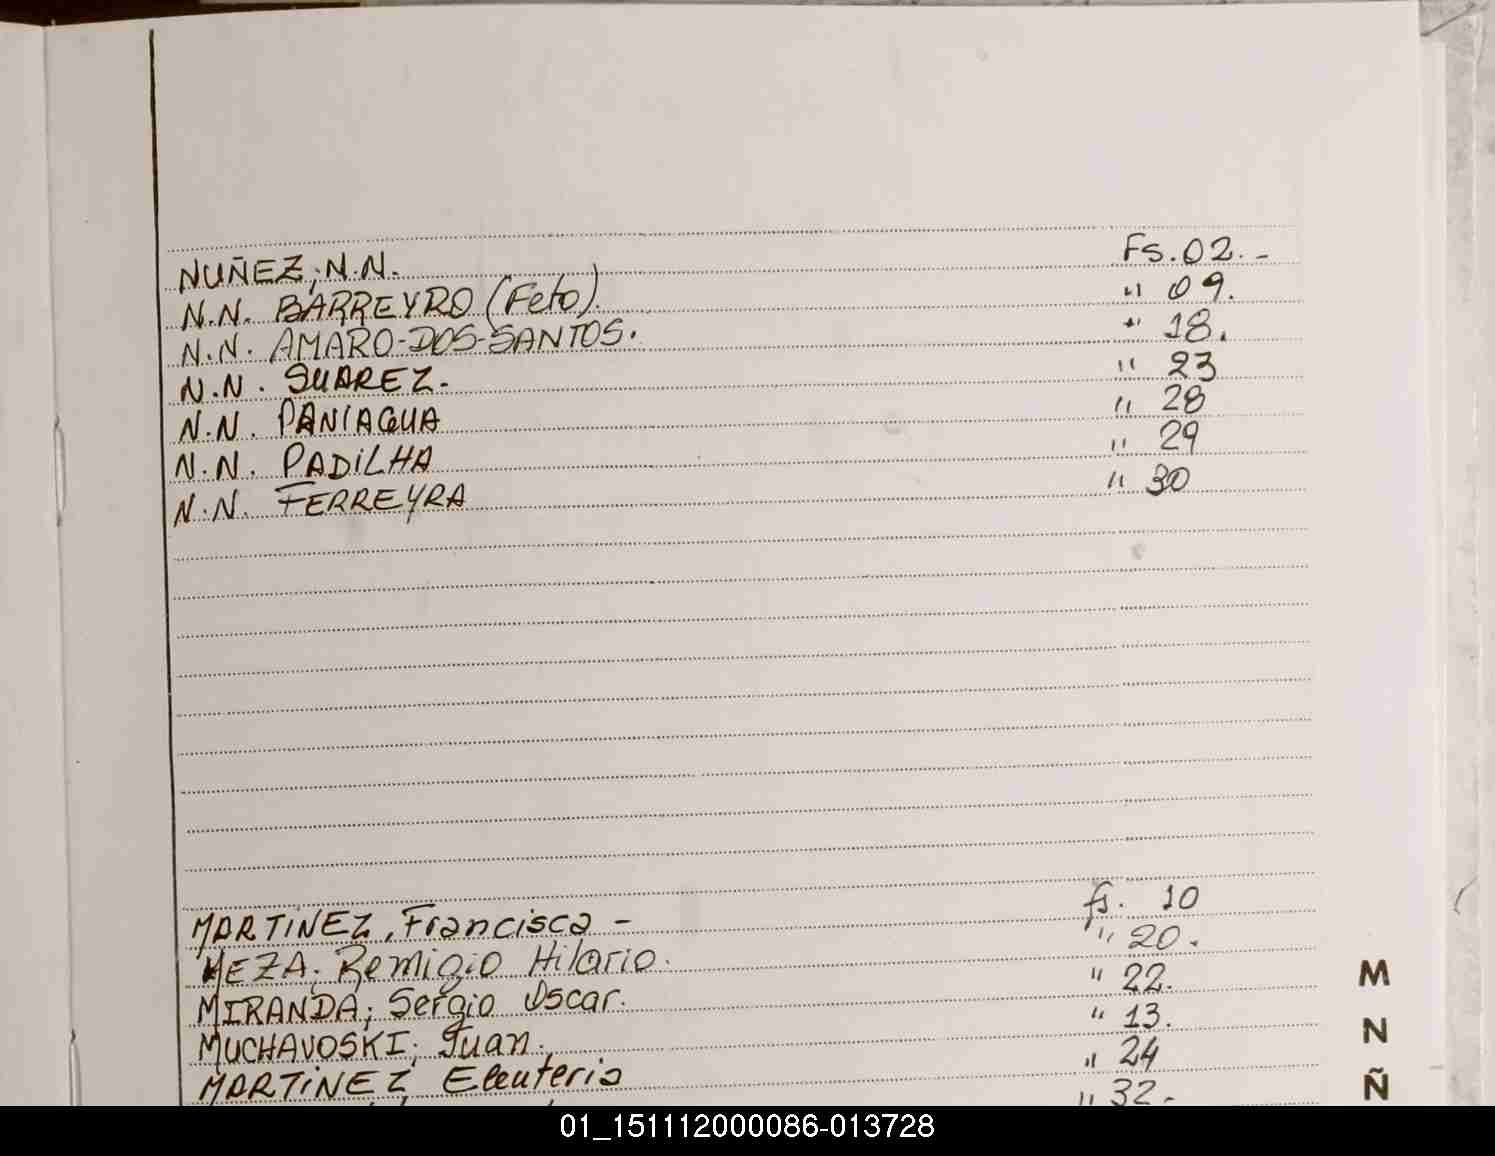 NUÑEZ; N.N. Fs. 02.-
N.N. BARREYRO (Feto). " 09.
N.N. AMARO-DOS-SANTOS. " 18.
N.N. SUAREZ.- " 23
N.N. PANIAGUA " 28
N.N. PADILHA " 29
N.N. FERREYRA " 30
MARTINEZ, Francisca - fs. 10
MEZA; Remigio Hilario. " 20.
MIRANDA; Sergio Oscar. " 22.
MUCHAVOSKI; Juan. " 13.
MARTINEZ, Eleuterio " 24
" 32.-
M
N
Ñ
01_151112000086-013728